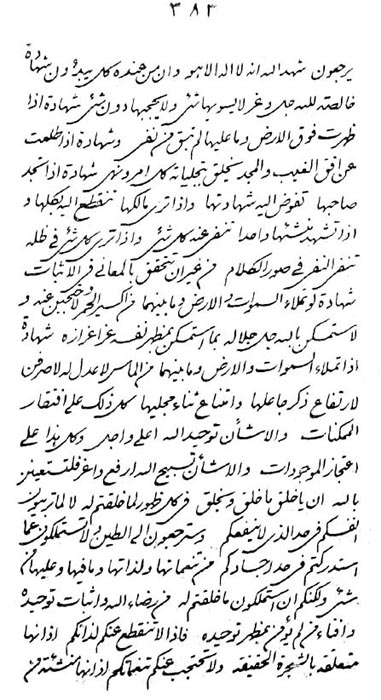 ٣٨٣
يرجعون شهد الله انه لا اله الا هو وان من عنده كل يبدؤن شهادة
خالصة لله جل وعز لا يسويها شئ ولا يحجبها دون شئ شهادة اذا
ظهرت فوق الارض وما عليها لم يبق من نفى وشهادة اذا طلعت
عن افق الغيب والمجد يخلق بتجلياته كل امر ونهى شهادة اذا تسجد
صاحبها تفوض اليه شهادتها واذا ترى مالكها تنقطع اليه بكلها و
اذا تشهد منشئها واحدا تنفى عنه كل شئ واذا ترى كل شئ فى ظله
تنفى النفى فى صور الكلام من غير ان يتحقق بالمعانى فى الاثبات
شهادة لو تملاء السموات والارض وما بينهما من اكسير الحمر لا يحتجبن عنه و
لا ستمسكن بالله جل جلاله بما استمسكن بمظهر نفسه عز اعزازه شهادة
اذا تملاء السموات والارض وما بينهما من الماس لا عدل له لاصرفن
لارتفاع ذكر جاعلها وامتناع ثناء مجليها كل ذلك على افتقار
الممكنات والا شأن توحيد الله اعلى واجل وكل هذا على
اعتجاز الموجودات والا شأن تسبيح الله ارفع واعز فلتستعينن
بالله ان يا خلق ما خلق ويخلق فى كل ظهور لما خلقتم له لا لما تريدون
انفسكم فى حد الذى لا ينفعكم وسترجعون الى الطين ولا تستملكون عما
استدركتم فى حد اجسادكم من نعمائها ولذاتها وما فيها وعليها من
شئ ولكنكم ان استملكون ما خلقتم له من رضاء الله واثبات توحيده
وافناء من لم يؤمن بمظهر توحيده فاذا لا تنقطع عنكم لذاتكم اذ انها
متعلقة بالشجرة الحقيقة ولا تحتجب عنكم نعمائكم اذ انها منشئة من